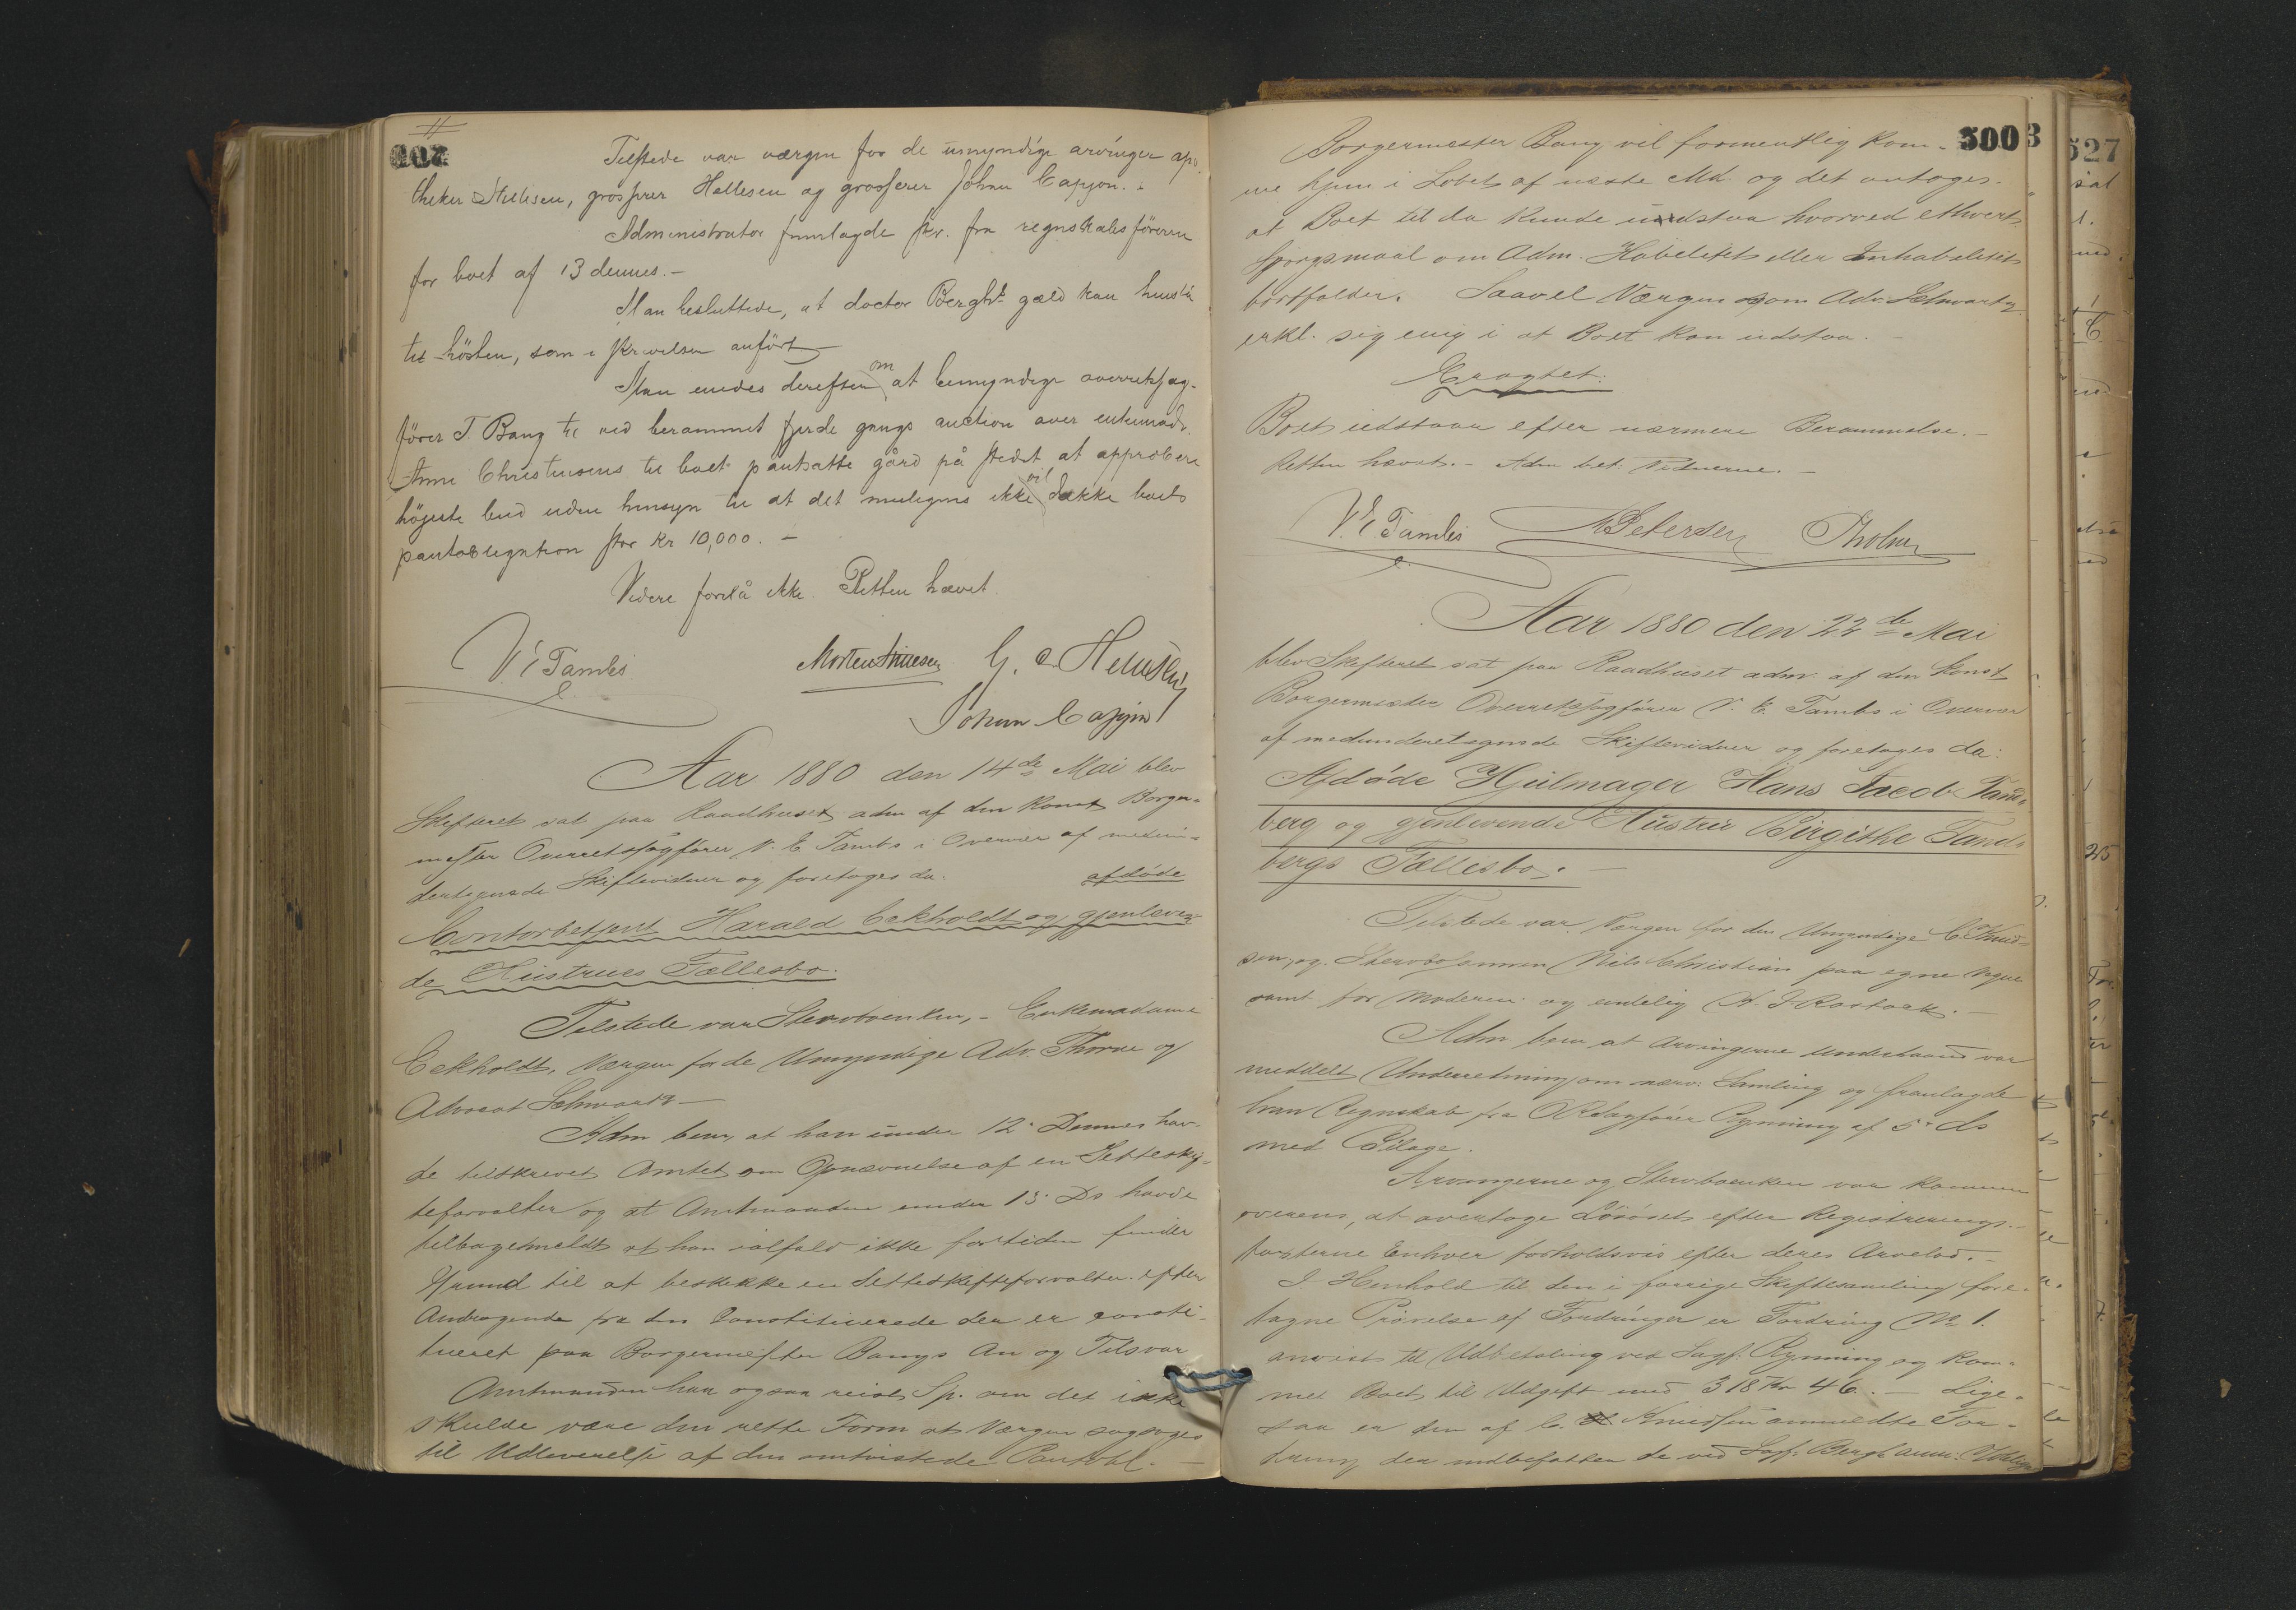 Tilstede var værgen for de umyndige arvinger apo-
theker Nielsen, grosserer Hellesen og grosserer Johan Cappon.
Administrator fremlagde skr. fra regnskabsföreren
for boet af 13 dennes. -
Man besluttede, at doctor Berghs gæld kan henstå
til hösten, som i skrivelsen anfört
Man enedes derefter om at bemyndige overretssag-
förer T. Bang til ved berammet fjerde gangs auction over enkemad.
Anne Christensens til boet pantsatte gård på stedet at approbere
högeste bud uden hensyn til at det muligens ikke vil dække boets
pantobligation stor Kr 10,000. -
Videre forelå ikke. Retten hævet.
V. E Tambs
Morten Nielsen
Johan Cappon
Aar 1880 den 14de Mai blev
Skifteret sat paa Raadhuset adm af den Konst Borger-
mester Overretssagfører V. E Tambs i Overvær af medun-
dertegnede Skiftevidner og foretoges da: afdøde
Contorbetjent Harald Eekholdt og gjenleven-
de Hustrues Fællesbo.
Tilstede var Stervboenken, - Enkemadame
Eekholdt, Værgen for de Umyndige Adv. Thorne og
Advocat Schwartz -
Adm bem. at han under 12' Dennes hav-
de tilskrevet Amtet om Opnævnelse af en Setteskif-
teforvalter og at Amtmanden under 13' Ds havde
tilbagemeldt at han ialfald ikke fortiden finder
Grund til at beskikke en Setteskifteforvalter efter
Andragende fra den Constituerede der er consti-
tueret paa Borgermester Bangs An og Tilsvar
Amtmanden har ogsaa reist Sp. om det ikke
skulde være den rette Form at Værgen sagsøges
til Udleverelse af den omtvistede Pantobl. -
500 3
527
Borgermester Bang vil formentlig kom-
me hjem i Løbet af næste Md. og det antoges
at Boet til da kunde udstaa hvorved ethvert
Spørgsmaal om Adm. Habilitet eller Inhabilitet
bortfalder. Saavel Værgen som Adv. Schwartz
erkl. sig enig i at Boet kan udstaa. -
Eragtet:
Boet udstaar efter nærmere Berammelse. -
Retten hævet. - Adm bet. Vidnerne. -
V. E Tambs Petersen Tholsen
Aar 1880 den 22de Mai
blev Skifteret sat paa Raadhuset adm. af den Konst
Borgermester Overretssagfører V. E. Tambs i Overvær
af medundertegnede Skiftevidner og foretoges da:
Afdøde Hjulmager Hans Jacob Tand-
berg og gjenlevende Hustru Birgithe Tand-
bergs Fællesbo. -
Tilstede var Værgen for den Umyndige C. Knud-
sen, og Stervbosønnen Nils Christian paa egne Vegne
samt for Moderen og endelig A. J. Rostock. -
Adm bem at Arvingerne underhaand var
meddelt Underretning om nærv. Samling og fremlagde
han Regnskab fra ORsagfører Rynning af 5' ds
med Bilage.
Arvingerne og Stervboenken var kommen
overens, at overtage Løsøret efter Registrerings-
taxterne Enhver forholdsvis efter deres Arvelod. -
I Henhold til den i forrige Skiftesamling fore-
tagne Prøvelse af Fordringer er Fordring No 1.
anvist til Udbetaling ved Sagf. Rynning og kom-
met Boet til Udgift med 318 Kr 46. - Lige-
saa er den af C. Knudsen anmeldte For-
dring der indbefatter de ved Sagf. Bergh anm.